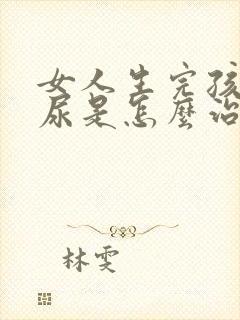 女人生完孩
尿是怎麼治
林雯